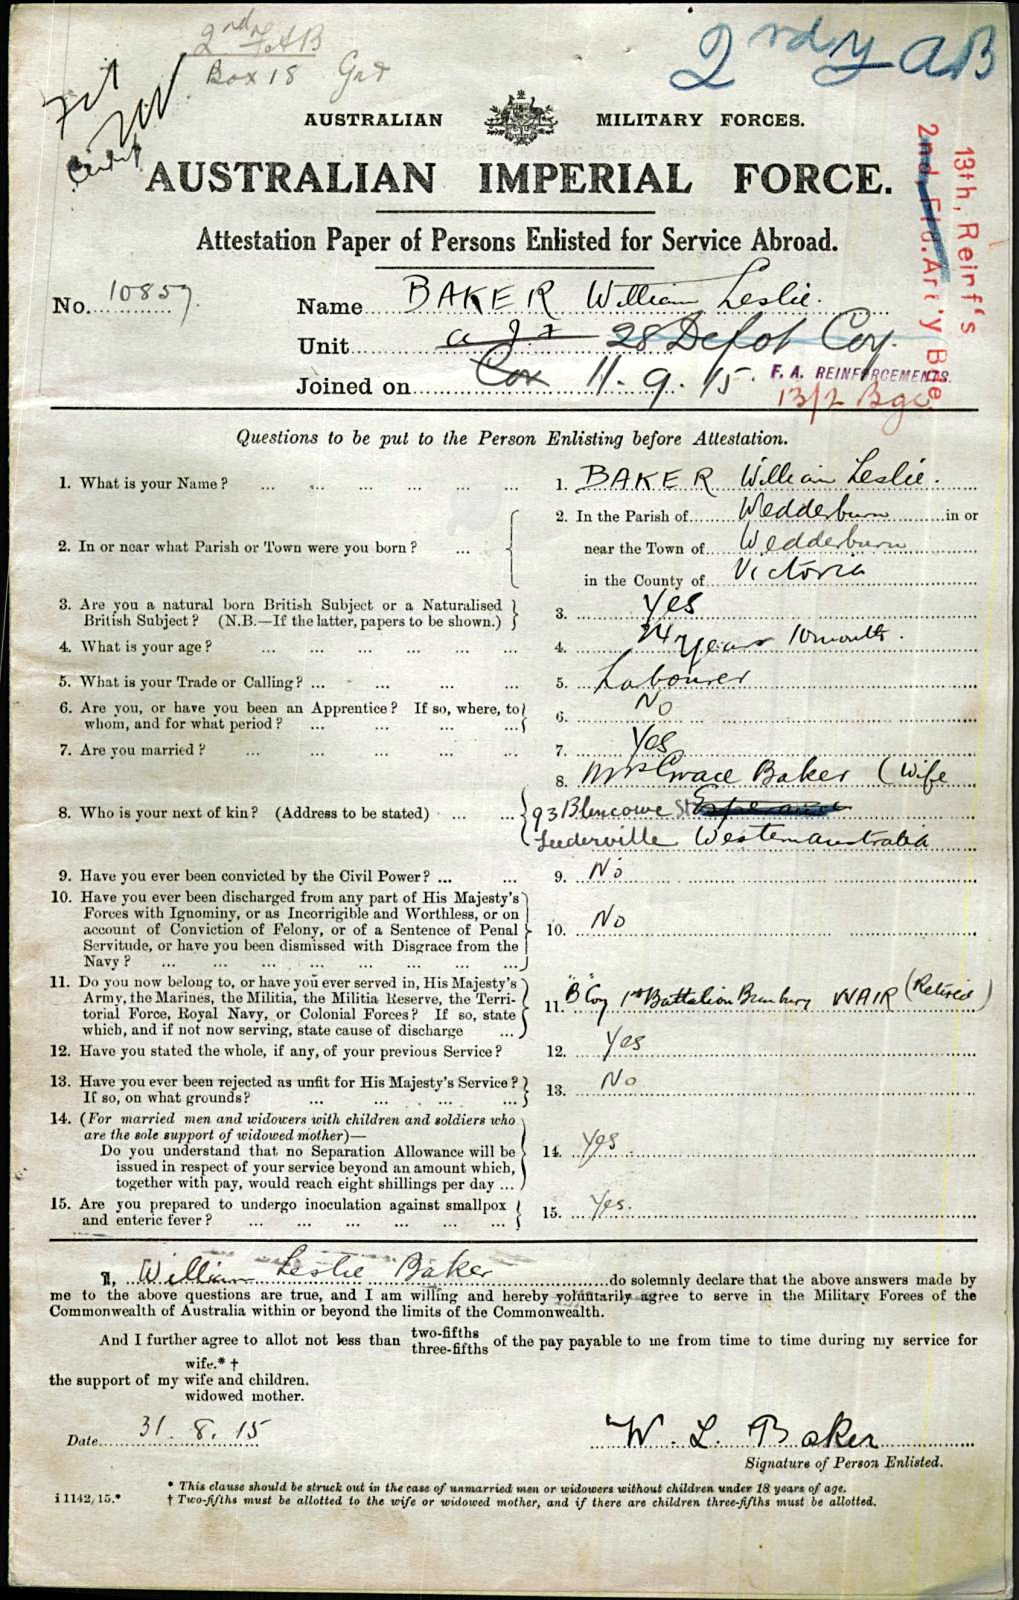 2nd FAB
Box 18
2nd FAB
Fit
AUSTRALIAN MILITARY FORCES.
AUSTRALIAN IMPERIAL FORCE.
Attestation Paper of Persons Enlisted for Service Abroad.
13th, Reinf's
2nd, Fld. Art'y Bde
No. 10857.
Name BAKER William Leslie.
Unit 28 Depot Coy.
Joined on 11.9.15.
F. A. REINFORCEMENTS.
13/2 Bge
Questions to be put to the Person Enlisting before Attestation.
1. What is your Name? ... ... ... ... ... ... 1. BAKER William Leslie.
2. In or near what Parish or Town were you born? ... 2. In the Parish of Wedderburn in or
near the Town of Wedderburn
in the County of Victoria
3. Are you a natural born British Subject or a Naturalised
British Subject? (N.B.—If the latter, papers to be shown.) 3. Yes
4. What is your age? ... ... ... ... ... ... 4. 24 years 10 months.
5. What is your Trade or Calling? ... ... ... ... 5. Labourer
6. Are you, or have you been an Apprentice? If so, where, to
whom, and for what period? ... ... ... ... 6. No
7. Are you married? ... ... ... ... ... 7. Yes
8. Who is your next of kin? (Address to be stated) ... ... 8. Mrs Grace Baker (Wife
93 Blencowe St
Leederville Western australia
9. Have you ever been convicted by the Civil Power? ... ... 9. No
10. Have you ever been discharged from any part of His Majesty's
Forces with Ignominy, or as Incorrigible and Worthless, or on
account of Conviction of Felony, or of a Sentence of Penal
Servitude, or have you been dismissed with Disgrace from the
Navy? ... ... ... ... ... ... ... ... 10. No
11. Do you now belong to, or have you ever served in, His Majesty's
Army, the Marines, the Militia, the Militia Reserve, the Terri-
torial Force, Royal Navy, or Colonial Forces? If so, state
which, and if not now serving, state cause of discharge ... 11. "B" Coy 1st Battalion Bunbury WAIR (Retired)
12. Have you stated the whole, if any, of your previous Service? 12. Yes
13. Have you ever been rejected as unfit for His Majesty's Service?
If so, on what grounds? ... ... ... ... 13. No
14. (For married men and widowers with children and soldiers who
are the sole support of widowed mother)—
Do you understand that no Separation Allowance will be
issued in respect of your service beyond an amount which,
together with pay, would reach eight shillings per day ... 14. Yes.
15. Are you prepared to undergo inoculation against smallpox
and enteric fever? ... ... ... ... ... ... 15. Yes.
I, William Leslie Baker do solemnly declare that the above answers made by
me to the above questions are true, and I am willing and hereby voluntarily agree to serve in the Military Forces of the
Commonwealth of Australia within or beyond the limits of the Commonwealth.
And I further agree to allot not less than two-fifths
three-fifths of the pay payable to me from time to time during my service for
wife.* †
the support of my wife and children.
widowed mother.
Date 31.8.15
W. L. Baker
Signature of Person Enlisted.
* This clause should be struck out in the case of unmarried men or widowers without children under 18 years of age.
i 1142/15.* † Two-fifths must be allotted to the wife or widowed mother, and if there are children three-fifths must be allotted.